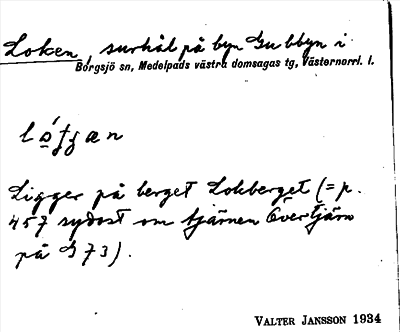 Loken, surhål på byn Gubbyn i
Borgsjö sn, Medelpads västra domsagas tg, Västernorrl. l.
Ligger på berget Lokberget (= p.
457 sydost om tjärnen Övertjärn
på G 73).
VALTER JANSSON 1934